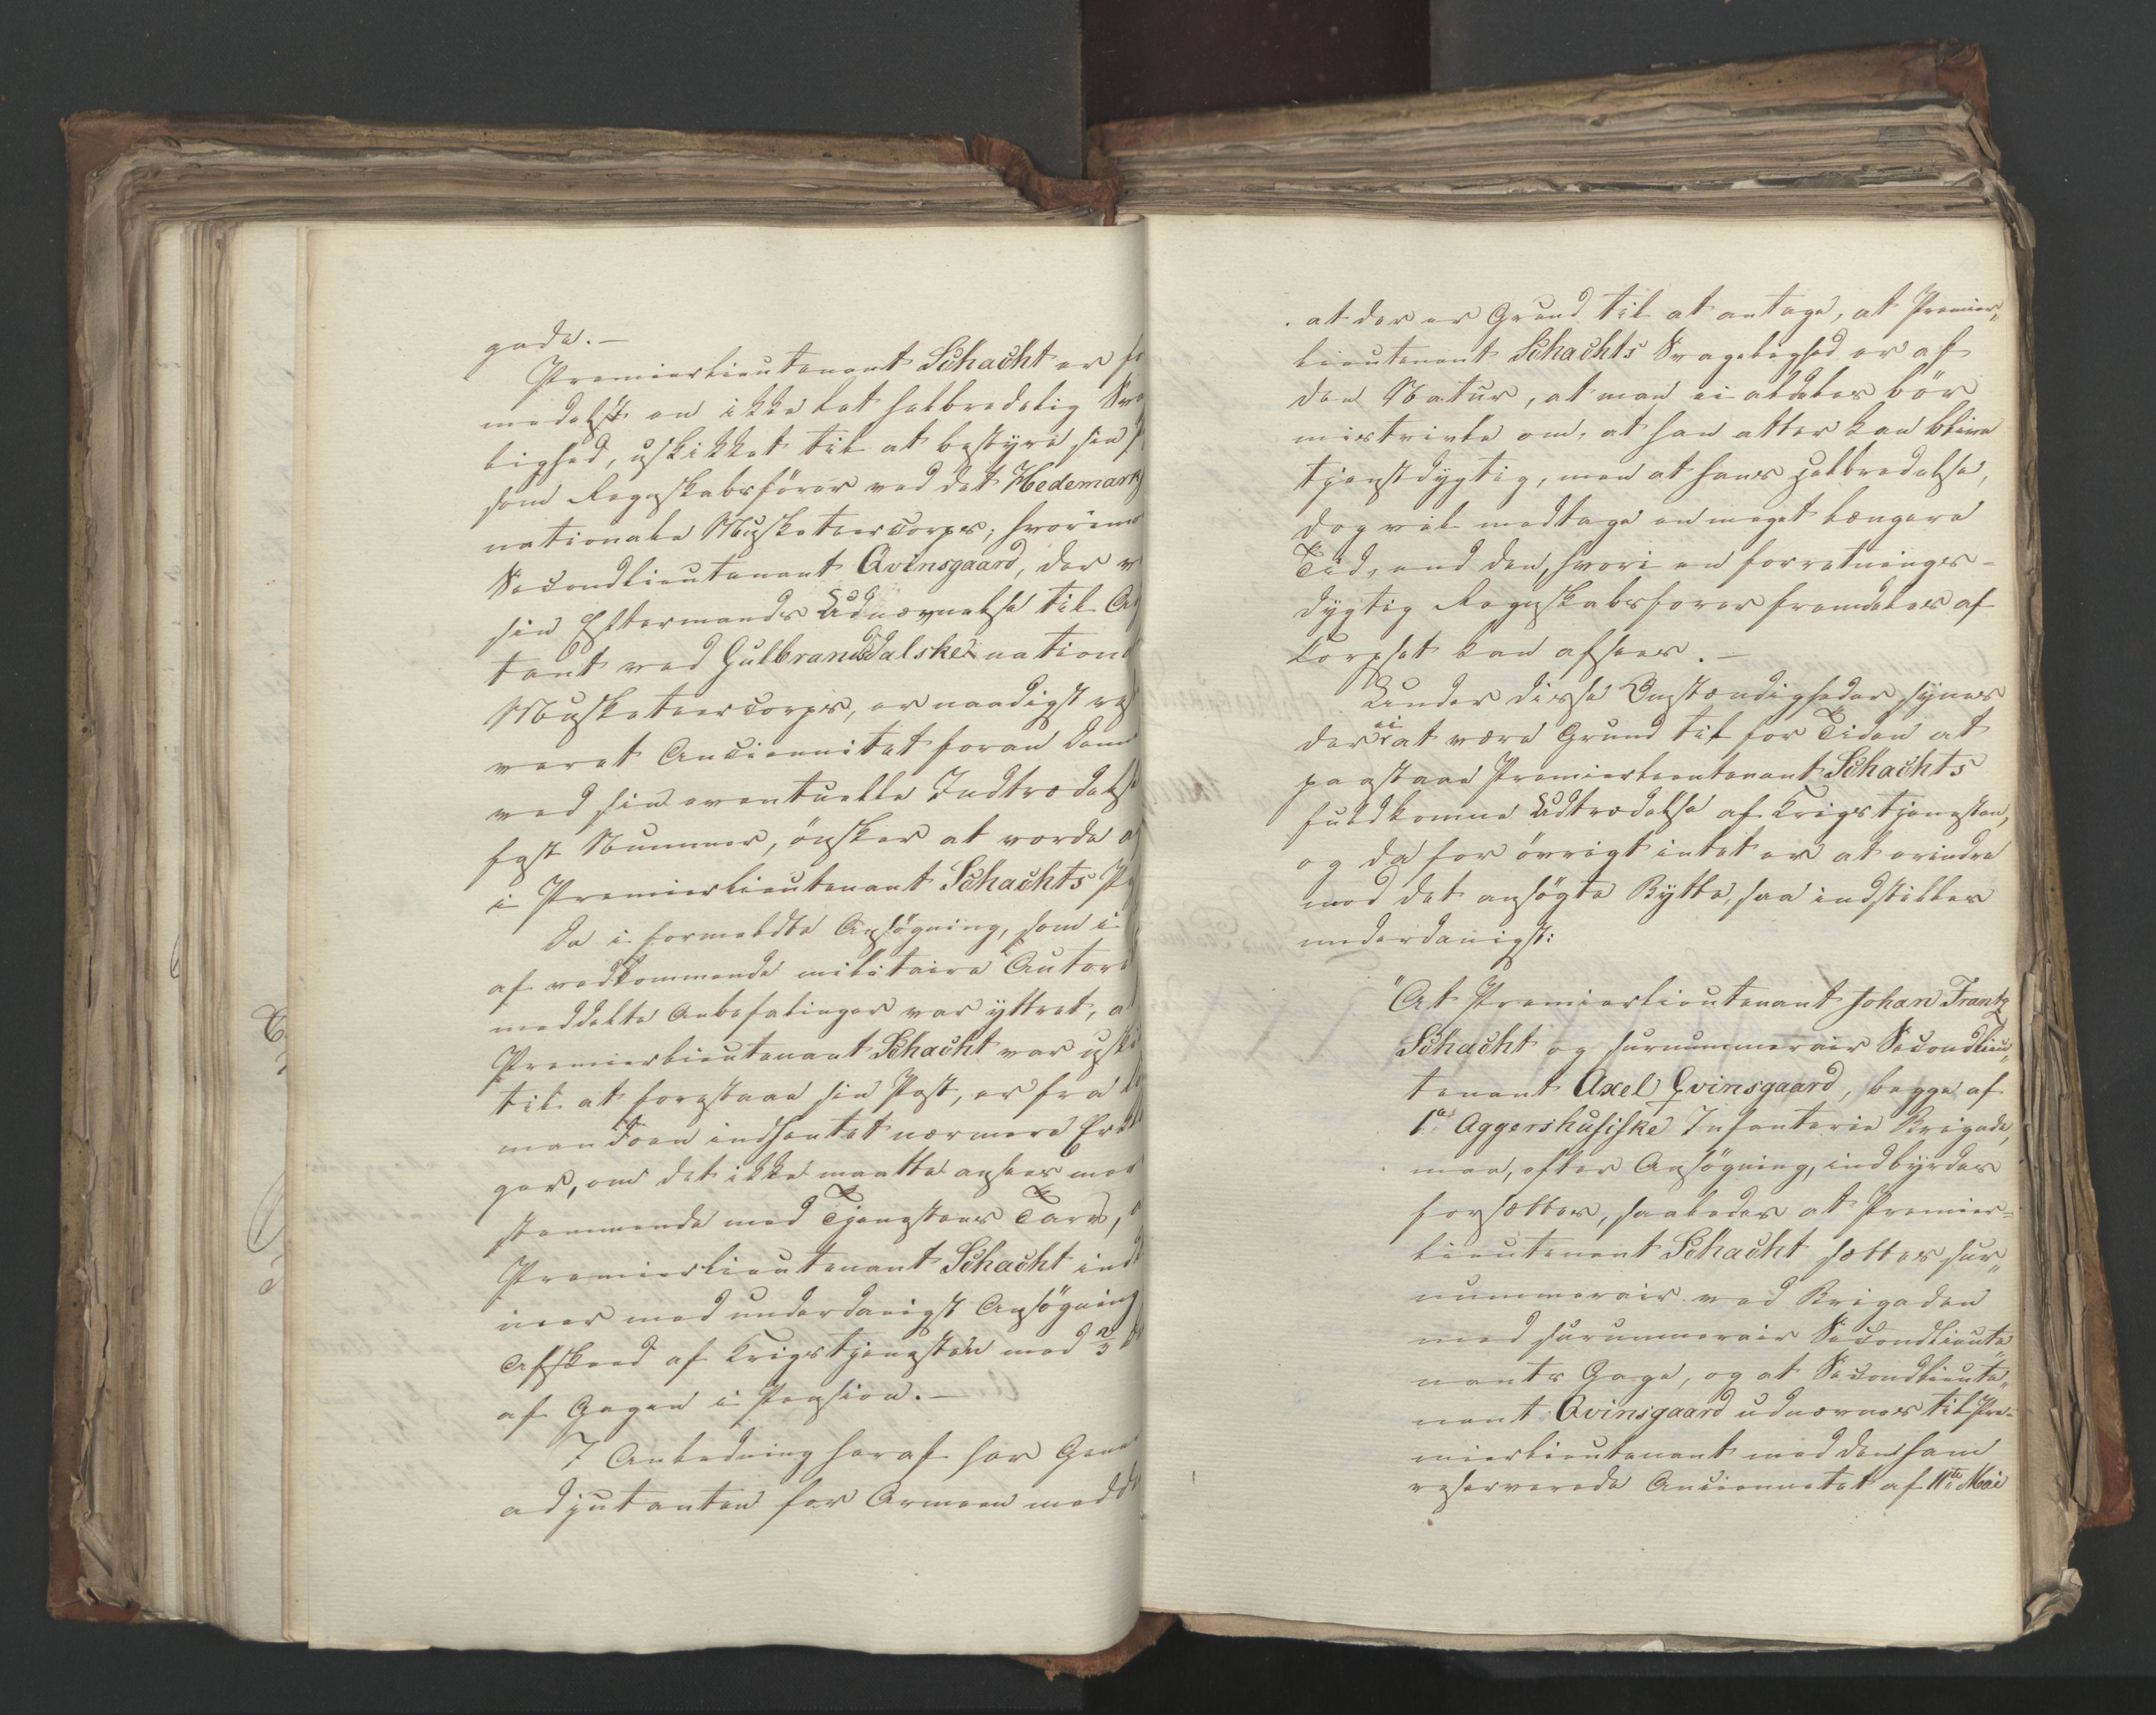 gade.—
Premierlieutenant Schacht er
medelst en ikke let helbredelig
lighed, uskikket til at bestyre sin
som Regnskabsförer ved det Hedemark
nationale Musketeercorps; hvorimod
Secondlieutenant Qvinsgaard, der
sin Eftermands Udnævnelse til
tant ved Gulbrandsdalske national
Musketeercorps, er naadigst res
veret Anciennitet foran dem
ved sin eventuelle Indtrædelse
fast Nummer, önsker at vorde
i Premierlieutenant Schachts
Da i formeldte Ansögning, som i
af vedkommende militaire Autori
meddelte Anbefalinger var yttret, at
Premierlieutenant Schacht var uski
til at forestaae sin Post, er fra
mandoen indhentet nærmere Erklæ
ger, om det ikke maatte ansees
stemmende med Tjenestens Tarv,
Premierlieutenant Schacht ind
mer med underdanigst Ansögning
Afskeed af Krigstjenesten med 2/3
af Gagen i Pension.—
I Anledning heraf har Gene
adjutanten for Armeen medde
at der er Grund til at antage, at Premier„
lieutenant Schachts Svagelighed er af
den Natur, at man ei aldeles bör
mistvivle om, at han atter kan blive
tjenstdygtig, men at hans Helbredelse,
dog vil medtage en meget længere
Tid, end den, hvori en forretnings-
dygtig Regnskabsförer fremdeles af
Corpset kan afsees.—
Under disse Omstændigheder synes
der ei at være Grund til for Tiden at
paastaae Premierlieutenant Schachts
fuldkomne Udtrædelse af Krigstjenesten,
og da for övrigt intet er at erindre
mod det ansögte Bytte, saa indstilles
underdanigst:
"At Premierlieutenant Johan Frantz
Schacht og surnummerair Secondlieu„
tenant Axel Qvinsgaard, begge af
1ste Aggershusiske Infanterie Brigade,
maa, efter Ansögning, indbyrdes
forsættes, saaledes at Premier=
lieutenant Schacht sættes sur„
nummerair ved Brigaden
med surnummerair Secondlieute„
nants Gage, og at Secondlieute„
nant Qvinsgaard udnævnes til Pre-
mierlieutenant med den ham
reserverede Anciennetet af 11te Mai